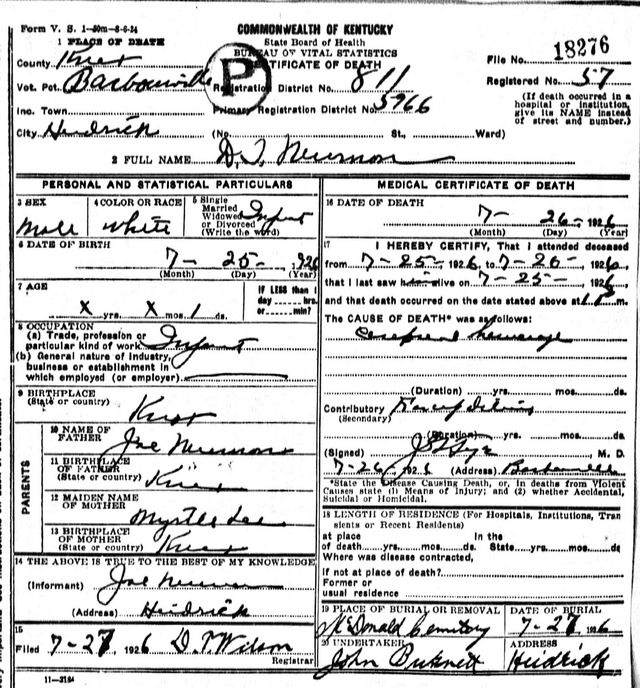 Form V. S. 1—50m—8-6-24
COMMONWEALTH OF KENTUCKY
State Board of Health
BUREAU OF VITAL STATISTICS
CERTIFICATE OF DEATH
1 PLACE OF DEATH
County Knox
File No. 18276
Vot. Pct. Barbourville
P
Registration District No. 811
Registered No. 57
Inc. Town
Primary Registration District No. 5966
(If death occurred in a hospital or institution, give its NAME instead of street and number.)
City Heidrick (No. St., Ward)
2 FULL NAME D. T. Newman
PERSONAL AND STATISTICAL PARTICULARS
3 SEX Male
4 COLOR OR RACE White
5 Single Married Widowed or Divorced (Write the word) Infant
6 DATE OF BIRTH
7- 25- 1926
(Month) (Day) (Year)
7 AGE
X yrs. X mos. 1 ds.
IF LESS than 1 day hrs. or min?
8 OCCUPATION
(a) Trade, profession or particular kind of work Infant
(b) General nature of Industry, business or establishment in which employed (or employer).
9 BIRTHPLACE
(State or country) Knox
PARENTS
10 NAME OF FATHER Joe Newman
11 BIRTHPLACE OF FATHER
(State or country) Knox
12 MAIDEN NAME OF MOTHER Myrtle Lee
13 BIRTHPLACE OF MOTHER
(State or country) Knox
14 THE ABOVE IS TRUE TO THE BEST OF MY KNOWLEDGE
(Informant) Joe Newman
(Address) Heidrick
15
Filed 7-27 1926 D. T. Wilson
Registrar
11—3184
MEDICAL CERTIFICATE OF DEATH
16 DATE OF DEATH
7- 26- 1926
(Month) (Day) (Year)
17 I HEREBY CERTIFY, That I attended deceased
from 7-25- 1926, to 7-26-, 1926,
that I last saw him alive on 7-25- 1926
and that death occurred on the date stated above at m.
The CAUSE OF DEATH* was as follows:
(Duration) yrs. mos. ds.
Contributory
(Secondary)
(Duration) yrs. mos. ds.
(Signed) M. D.
7-26, 1926 (Address) Barbourville
*State the Disease Causing Death, or, in deaths from Violent Causes state (1) Means of Injury; and (2) whether Accidental, Suicidal or Homicidal.
18 LENGTH OF RESIDENCE (For Hospitals, Institutions, Tran
sients or Recent Residents)
at place of death yrs. mos. ds. In the State yrs. mos. ds.
Where was disease contracted,
if not at place of death?
Former or
usual residence
19 PLACE OF BURIAL OR REMOVAL
McDonald Cemetery
DATE OF BURIAL
7-27 1926
20 UNDERTAKER
John Burnett
ADDRESS
Heidrick